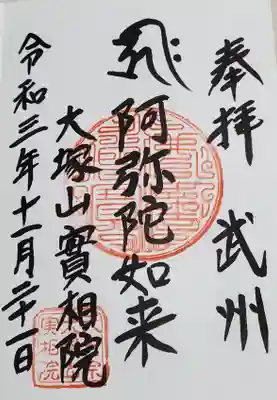 奉拝 武州
阿弥陀如来
大塚山實相院
令和三年十一月二十一日
實相院